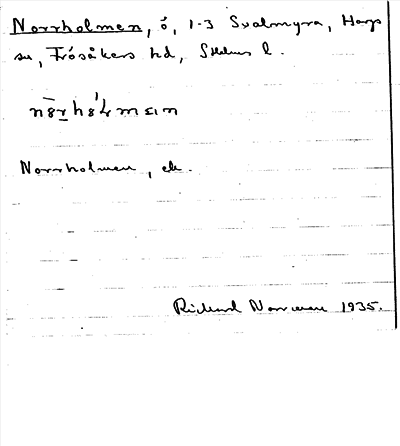 Norrholmen, ö, 1-3 Svalmyra, Harg
sn, Frösåkers hd, Sthlms l.
Norrholmen, ek.
Rickard Norrman 1935.